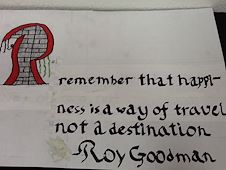 remember that happi-
ness is a way of travel
not a destination
~Roy Goodman